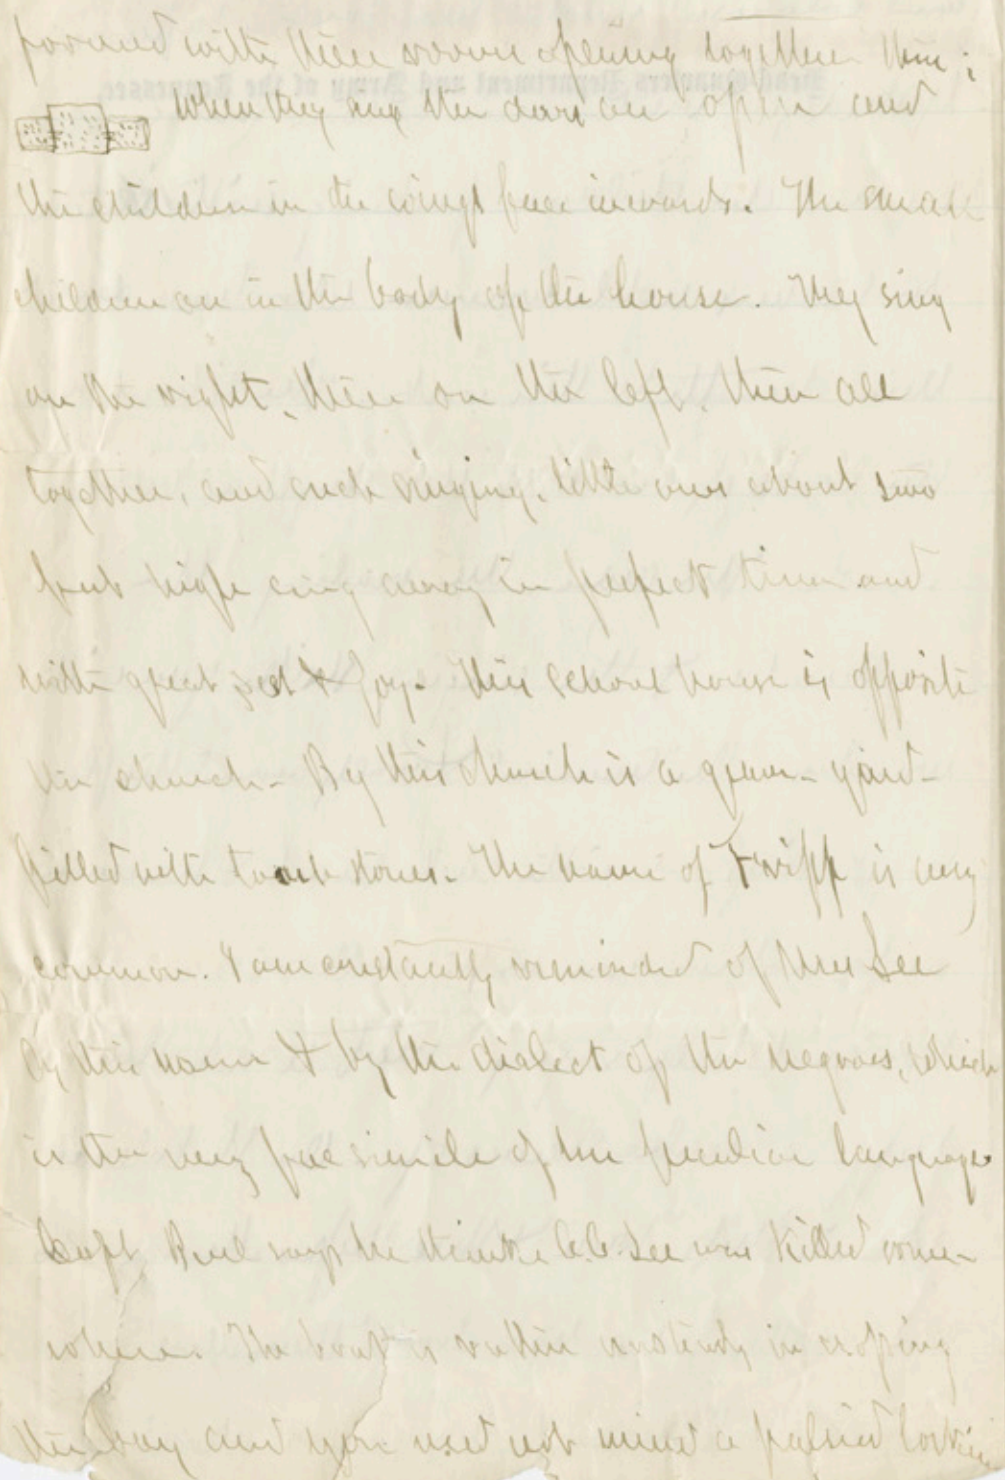 formed with three rooms opening together thus:
when they sing the doors are open and
the children in the wings face inwards. The small
children are in the body of the house. They sing
on the right, then on the left, then all
together, and such singing, little ones about two
feet high sing away in perfect time and
with great zest & joy. This school house is opposite
the church - By this church is a grave-yard -
filled with tomb stones. The name of Fripp is very
common. I am constantly reminded of Mrs Lee
by this name & by the dialect of the negroes, which
is the very fac simile of her peculiar language.
Capt. says he thinks C.C. Lee was killed some-
where. The boat is rather unsteady in crossing
the bay and you need not mind a palsied looking